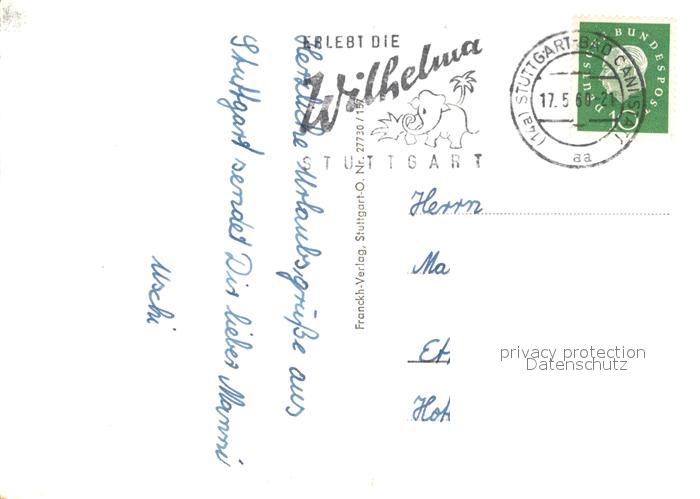 ERLEBT DIE
Wilhelma
STUTTGART
(14a) STUTTGART-BAD CANNSTATT
17.5.60-21
aa
DEUTSCHE BUNDESPOST
10
Herzliche Urlaubsgrüße aus
Stuttgart sendet Dir lieber Manni
Uschi
Franckh-Verlag, Stuttgart-O. Nr. 27730 /
Herrn
Ma
Et
Hoh
privacy protection
Datenschutz